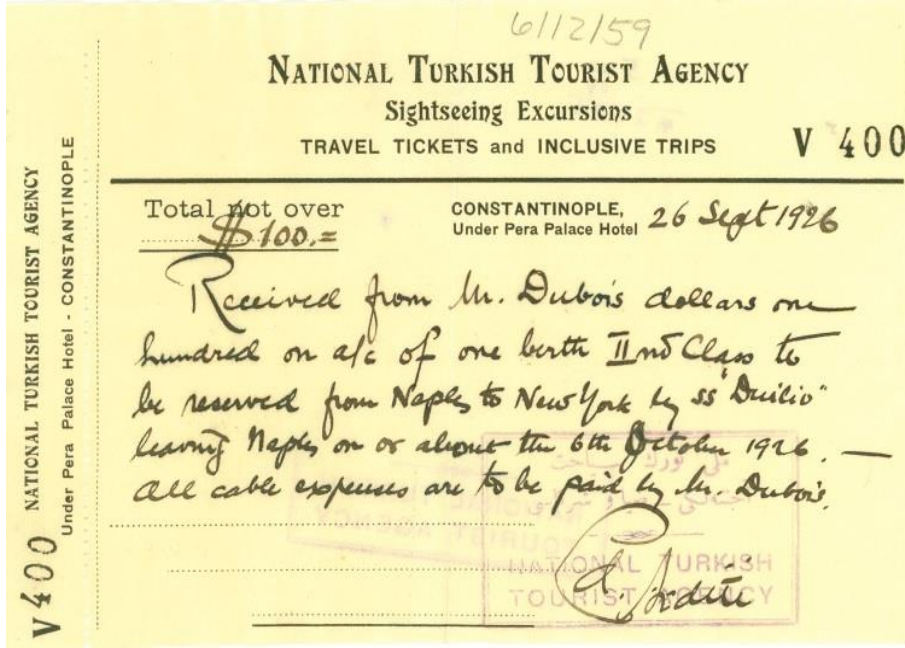 6/12/59
NATIONAL TURKISH TOURIST AGENCY
Sightseeing Excursions
TRAVEL TICKETS and INCLUSIVE TRIPS
V 400
Total not over
$100.=
CONSTANTINOPLE,
Under Pera Palace Hotel
26 Sept 1926
Received from Mr. Dubois dollars one
hundred on a/c of one berth IInd Class to
be reserved from Naples to New York by ss "Duilio"
leaving Naples on or about the 6th October 1926. —
All cable expenses are to be paid by Mr. Dubois.
NATIONAL TURKISH
TOURIST AGENCY
V 400
NATIONAL TURKISH TOURIST AGENCY
Under Pera Palace Hotel - CONSTANTINOPLE